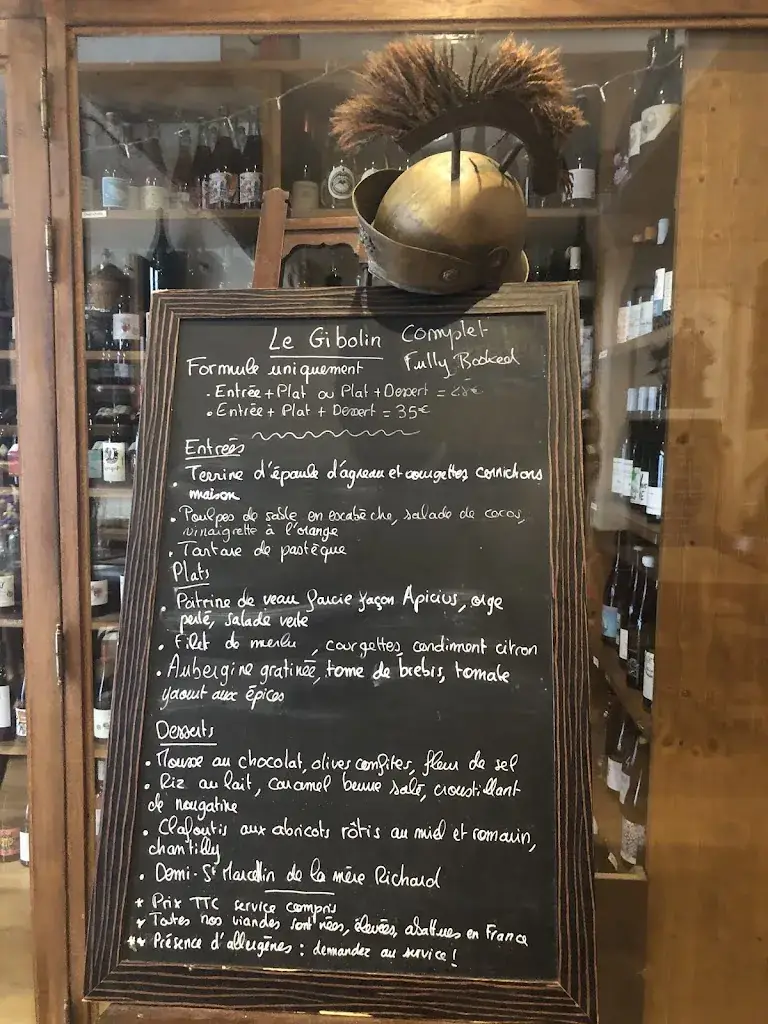 Le Gibolin Complet
Formule uniquement Fully Booked
• Entrée + Plat ou Plat + Dessert =
• Entrée + Plat + Dessert = 35€
Entrées
• Terrine d'épaule d'agneau et courgettes, cornichons
maison
• Poulpes de sable en escabèche, salade de cocos,
vinaigrette à l'orange
• Tartare de pastèque
Plats
• Poitrine de veau farcie façon Apicius, orge
perlé, salade verte
• Filet de merlu, courgettes, condiment citron
• Aubergine gratinée, tome de brebis, tomate
yaourt aux épices
Desserts
• Mousse au chocolat, olives confites, fleur de sel
• Riz au lait, caramel beurre salé, croustillant
de nougatine
• Clafoutis aux abricots rôtis au miel et romarin,
chantilly
• Demi-St Marcellin de la mère Richard
* Prix TTC service compris
* Toutes nos viandes sont nées, élevées, abattues en France
** Présence d'allergènes : demandez au service !